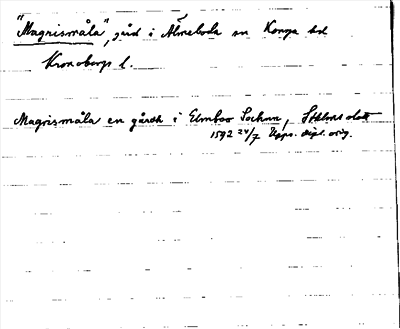 "Magrismåla", gård i Älmeboda sn Konga hd
Kronobergs l.
Magrismåla en gårdh i Elmboo Sochnn, Sthlms slott
1592 24/7 Upps. dipl. orig.